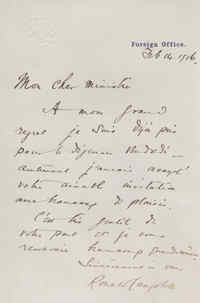 Foreign Office.
Feb 14 1906.
Mon cher Ministre
A mon grand
regret je suis déjà pris
pour le déjeuner Vendredi –
autrement j'aurais accepté
votre aimable invitation
avec beaucoup de plaisir.
C'est très gentil de
votre part et je vous
remercie beaucoup
Sincèrement à vous
Ronald